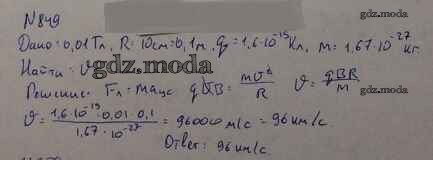 N849
gdz.moda
Дано: 0,01 Тл, R: 10см=0,1м, q = 1,6·10⁻¹⁹ Кл, m: 1,67·10⁻²⁷ кг.
Найти: υ gdz.moda
Решение: Fл = maцс qυB = mυ²/R υ = qBR/m
gdz.moda
υ = 1,6·10⁻¹⁹·0,01·0,1 / 1,67·10⁻²⁷ = 96000 м/с = 96 км/с.
Ответ: 96 км/с.